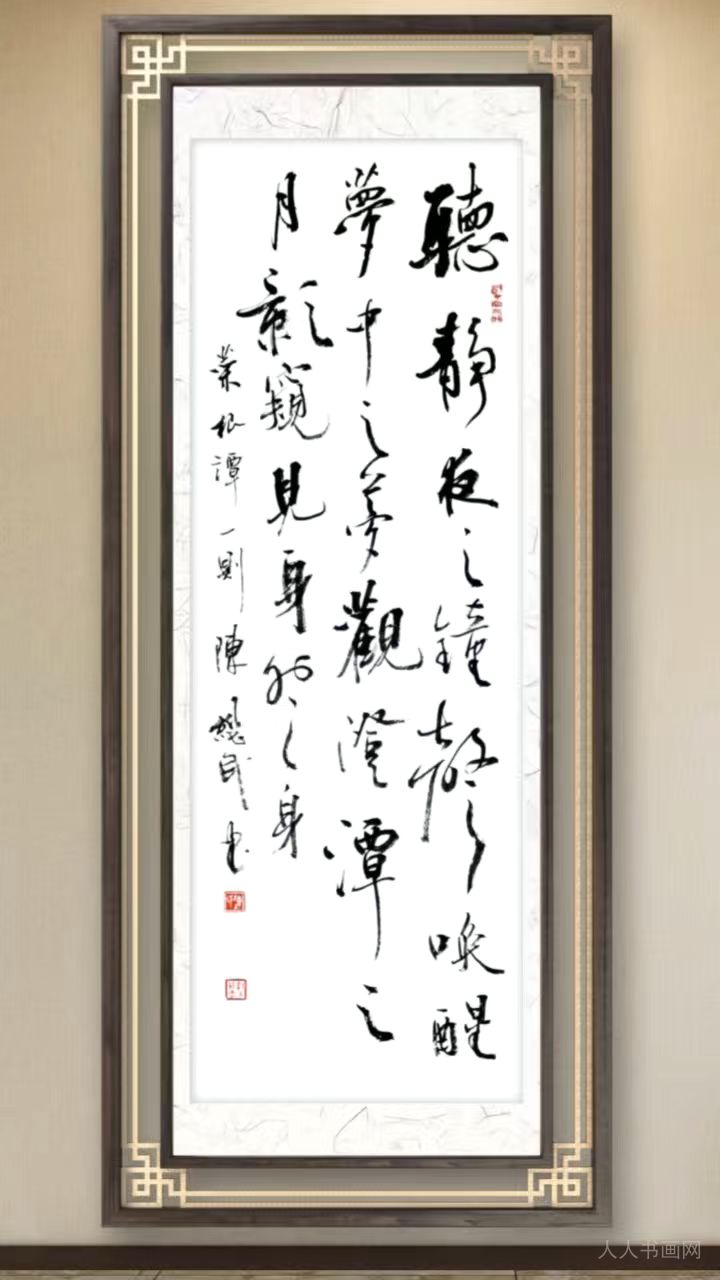 聽靜夜之鐘聲唤醒
夢中之夢觀澄潭之
月影窺見身外之身
菜根譚一則 陳懋武书
人人书画网